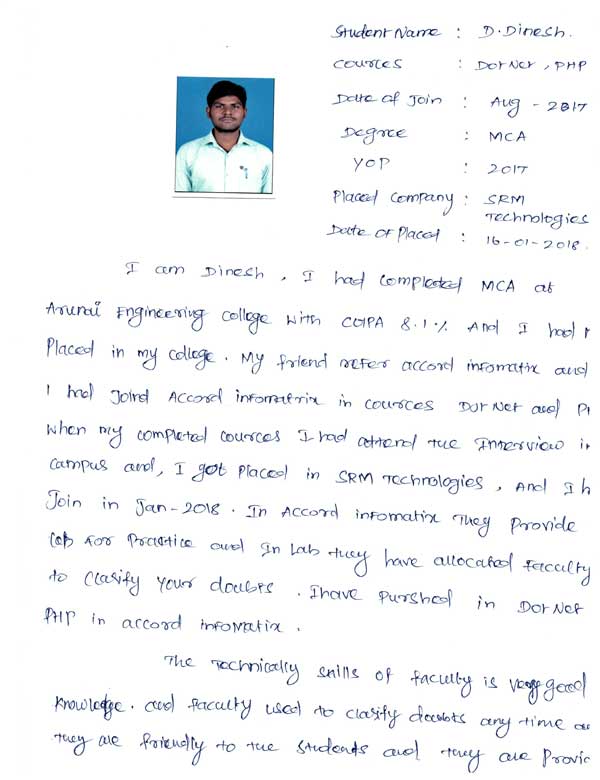 Student Name : D. Dinesh.
Cources : Dot Net, PHP
Date of Join : Aug - 2017
Degree : MCA
YOP : 2017
Placed Company : SRM
Technologies
Date of Placed : 16-01-2018.
I am Dinesh, I had completed MCA at
Arunai Engineering college with CGPA 8.1% And I had
Placed in my college. My friend refer accord infomatix and
I had Joind Accord infomatrix in cources Dot Net and
When my completed cources I had attend the Interview
campus and, I got placed in SRM Technologies, And I
Join in Jan-2018. In Accord infomatix They Provide
Lab for Practice and In Lab they have allocated faculty
to clarify your doubts. I have purshed in Dot Net
PHP in accord infomatix.
The Technically skills of faculty is very good
knowledge. and faculty used to clarify doubts any time
they are friendly to the students and they are